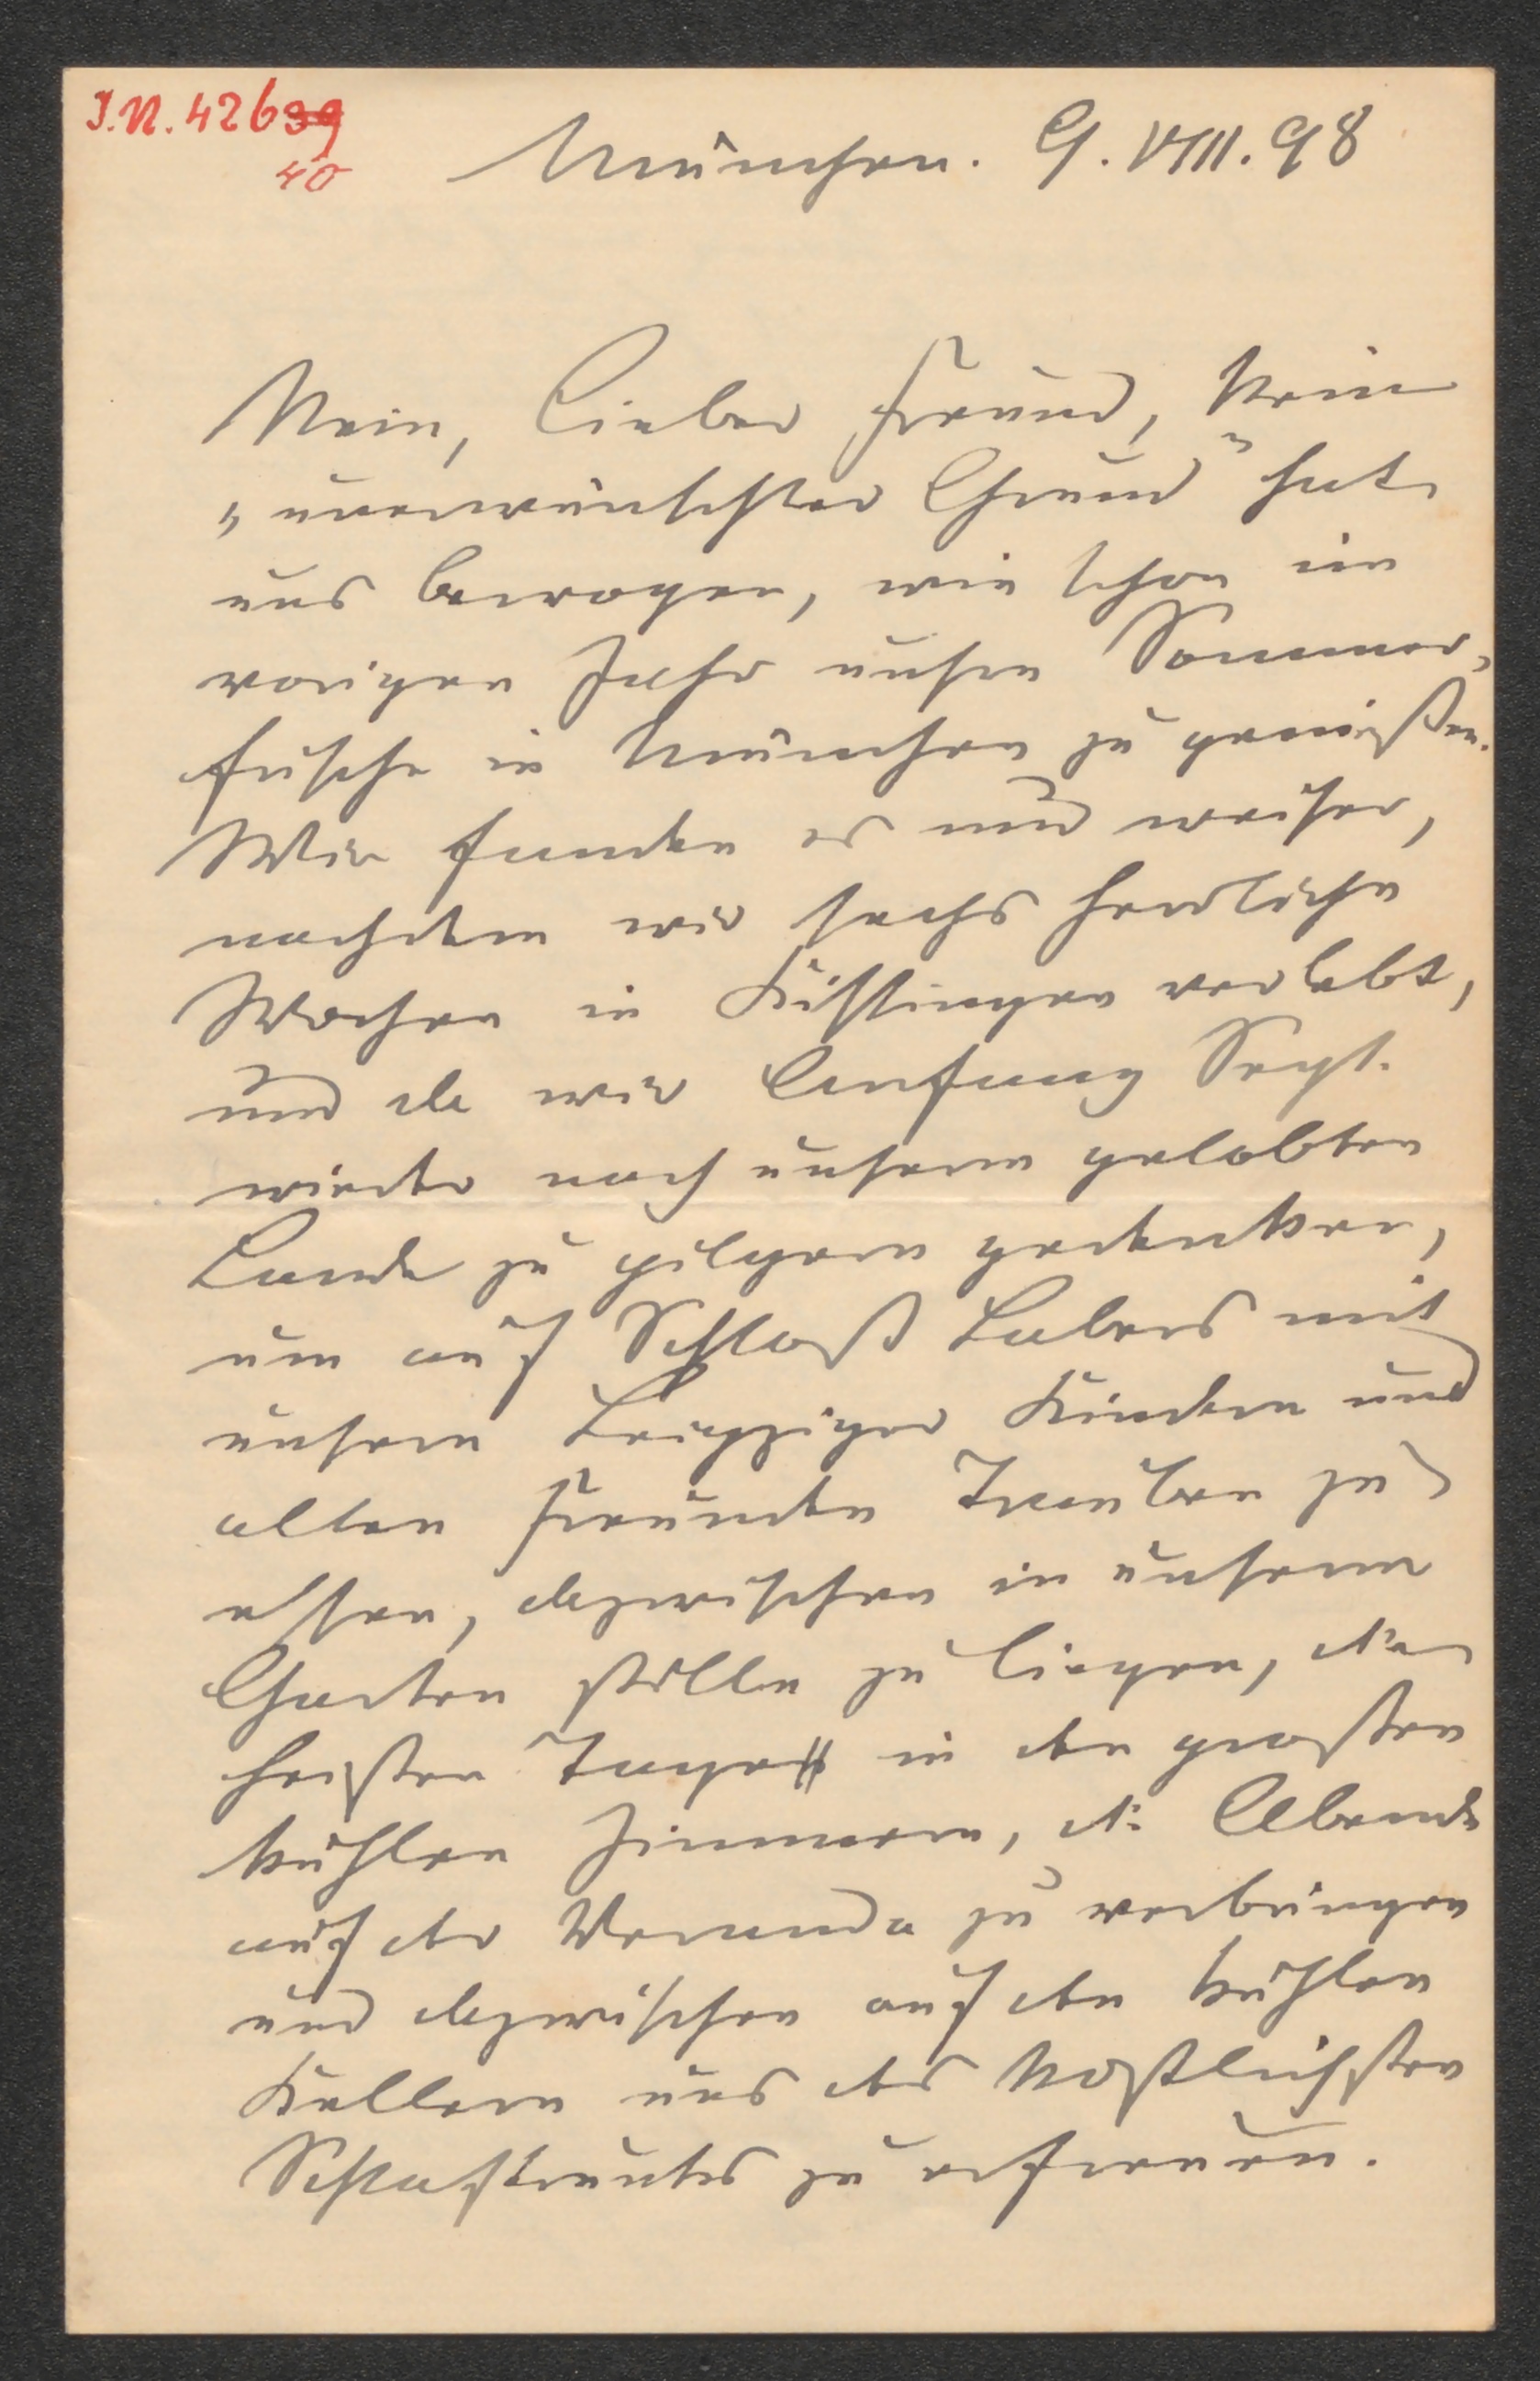 J.N. 42639
40
München. 9. VIII. 98
Nein, lieber Freund, kein
„unerwünschter Grund" hat
uns bewogen, wie schon im
vorigen Jahr unsre Sommer-
frische in München zu genießen.
Wir fanden es nur weiser,
nachdem wir sechs herrliche
Wochen in Kissingen verlebt,
und da wir Anfang Sept.
wieder nach unserm gelobten
Lande zu pilgern gedenken,
um auf Schloß Labers mit
unsern Leipziger Kindern und
alten Freunden Trauben zu
essen, dazwischen in unserm
Garten stille zu liegen, die
heißen Tage in den großen
kühlen Zimmern, die Abende
auf der Veranda zu verbringen
und dazwischen auf den kühlen
Kellern uns des köstlichsten
Schlaftrunks zu erfreuen.